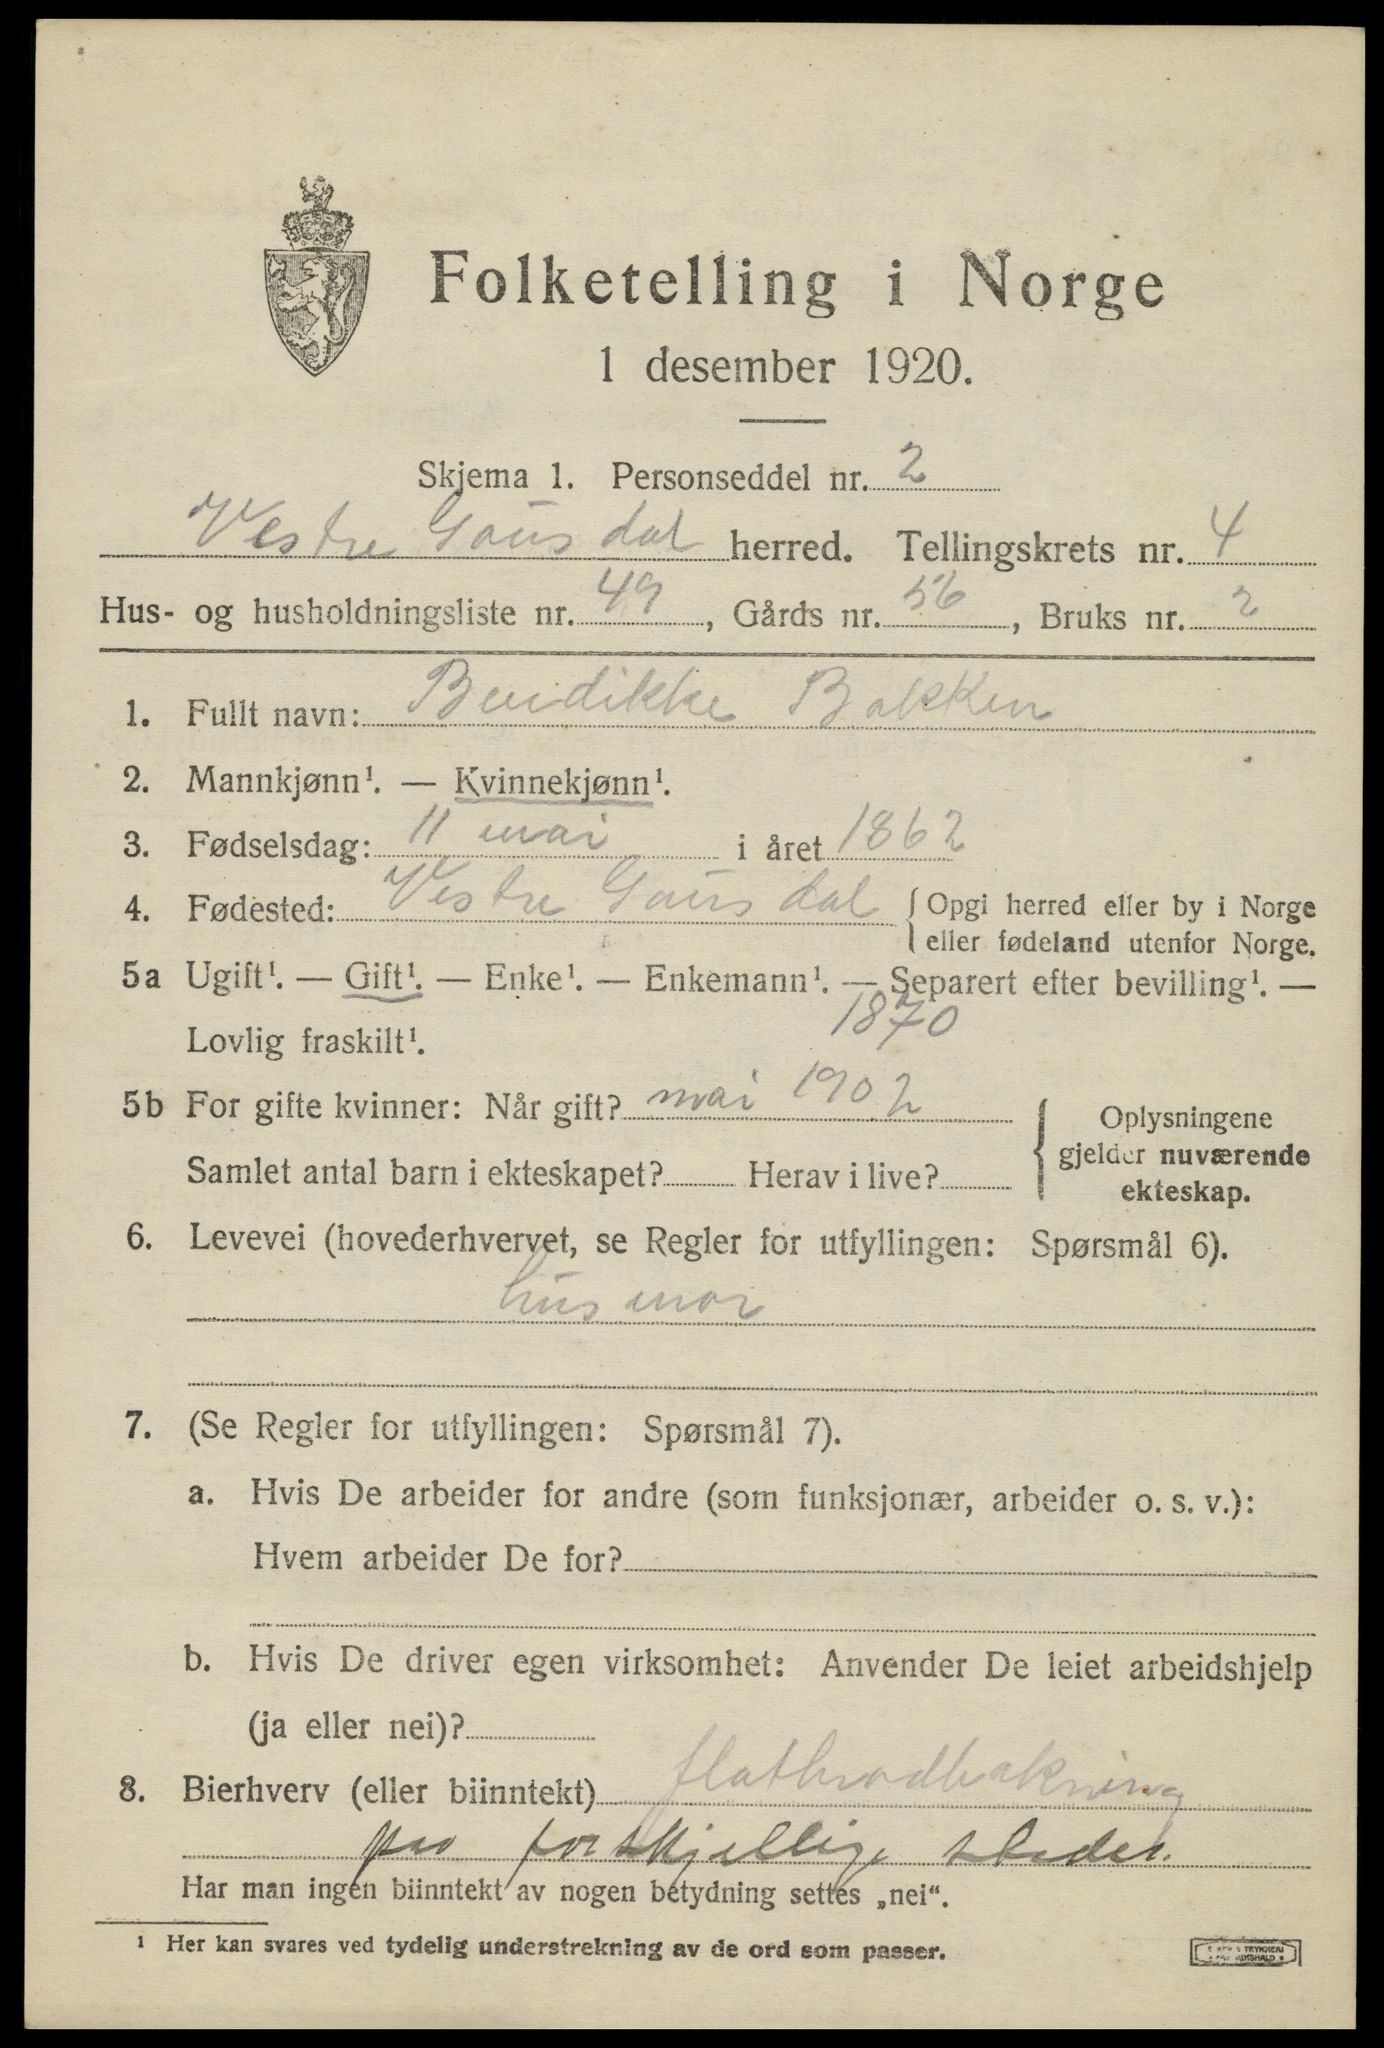 Folketelling i Norge
1 desember 1920.
Skjema 1. Personseddel nr. 2
Vestre Gausdal herred. Tellingskrets nr. 4
Hus- og husholdningsliste nr. 49, Gårds nr. 56, Bruks nr. 2
1. Fullt navn: Bendikke Bakken
2. Mannkjønn¹. — Kvinnekjønn¹.
3. Fødselsdag: 11 mai i året 1862
4. Fødested: Vestre Gausdal { Opgi herred eller by i Norge
eller fødeland utenfor Norge.
5a Ugift¹. — Gift¹. — Enke¹. — Enkemann¹. — Separert efter bevilling¹. —
Lovlig fraskilt¹. 1870
5b For gifte kvinner: Når gift? mai 1902
Samlet antal barn i ekteskapet? Herav i live?
{ Oplysningene
gjelder nuværende
ekteskap.
6. Levevei (hovederhvervet, se Regler for utfyllingen: Spørsmål 6).
husmor
7. (Se Regler for utfyllingen: Spørsmål 7).
a. Hvis De arbeider for andre (som funksjonær, arbeider o. s. v.):
Hvem arbeider De for?
b. Hvis De driver egen virksomhet: Anvender De leiet arbeidshjelp
(ja eller nei)?
8. Bierhverv (eller biinntekt) flatbrødbakning
paa forskjellige steder.
Har man ingen biinntekt av nogen betydning settes „nei“.
¹ Her kan svares ved tydelig understrekning av de ord som passer.